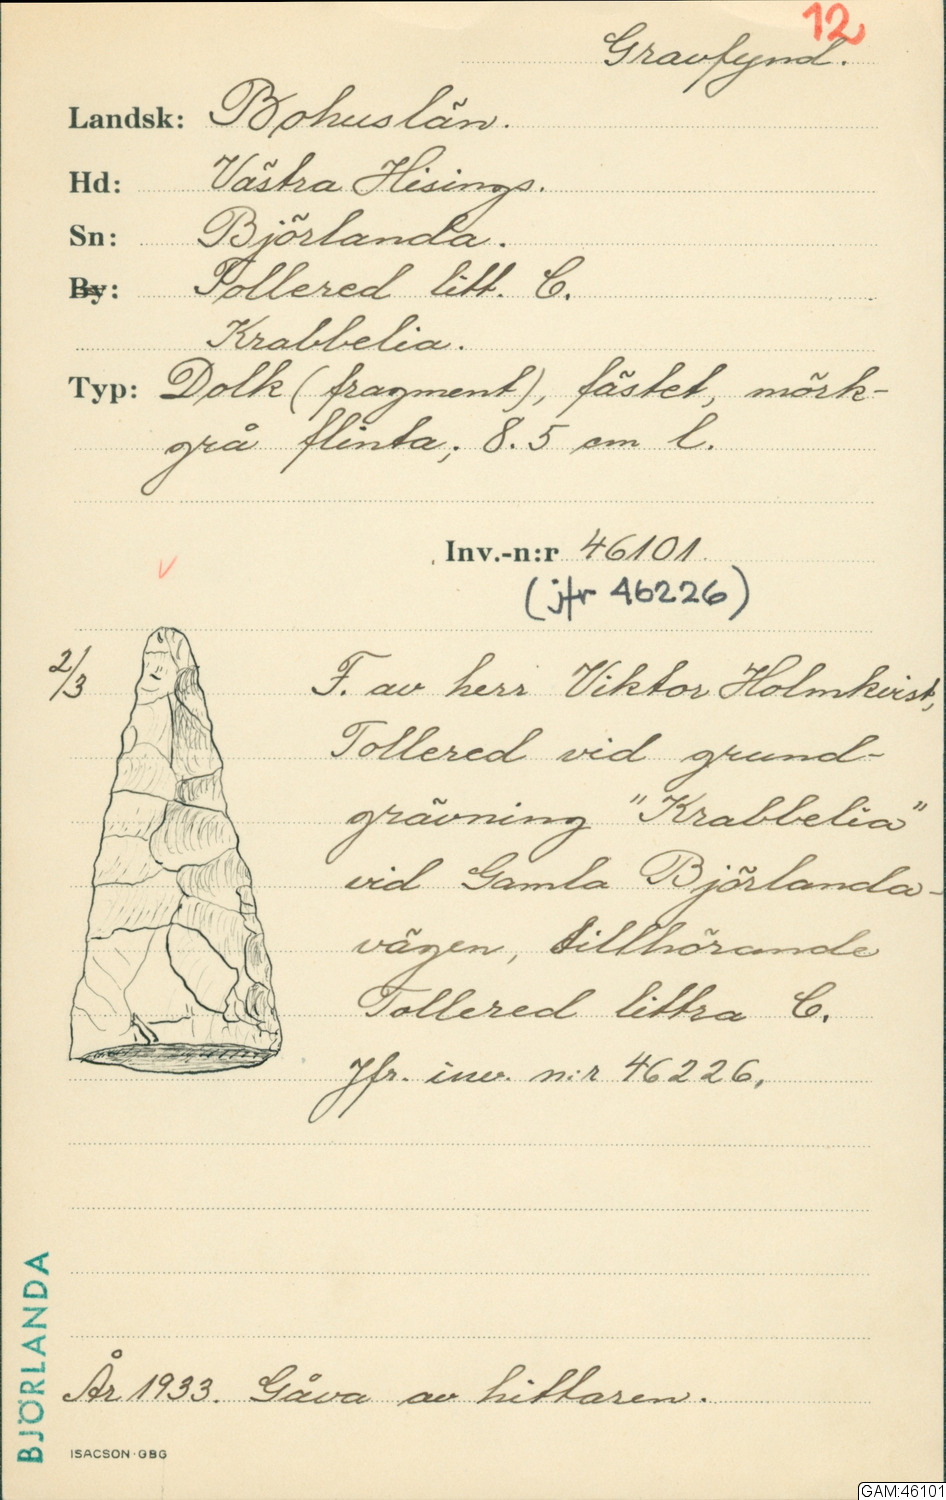 12
Gravfynd.
Landsk: Bohuslän.
Hd: Västra Hisings.
Sn: Björlanda.
By: Tollered litt. C.
Krabbelia.
Typ: Dolk (fragment), fästet, mörk-
grå flinta; 8.5 cm l.
Inv.-n:r 46101.
(jfr 46226)
2/3
F. av herr Viktor Holmkvist,
Tollered vid grund-
grävning "Krabbelia"
vid Gamla Björlanda-
vägen, tillhörande
Tollered littra C.
Jfr. inv. n:r 46226.
BJÖRLANDA
År 1933. Gåva av hittaren.
ISACSON·GBG
GAM:46101